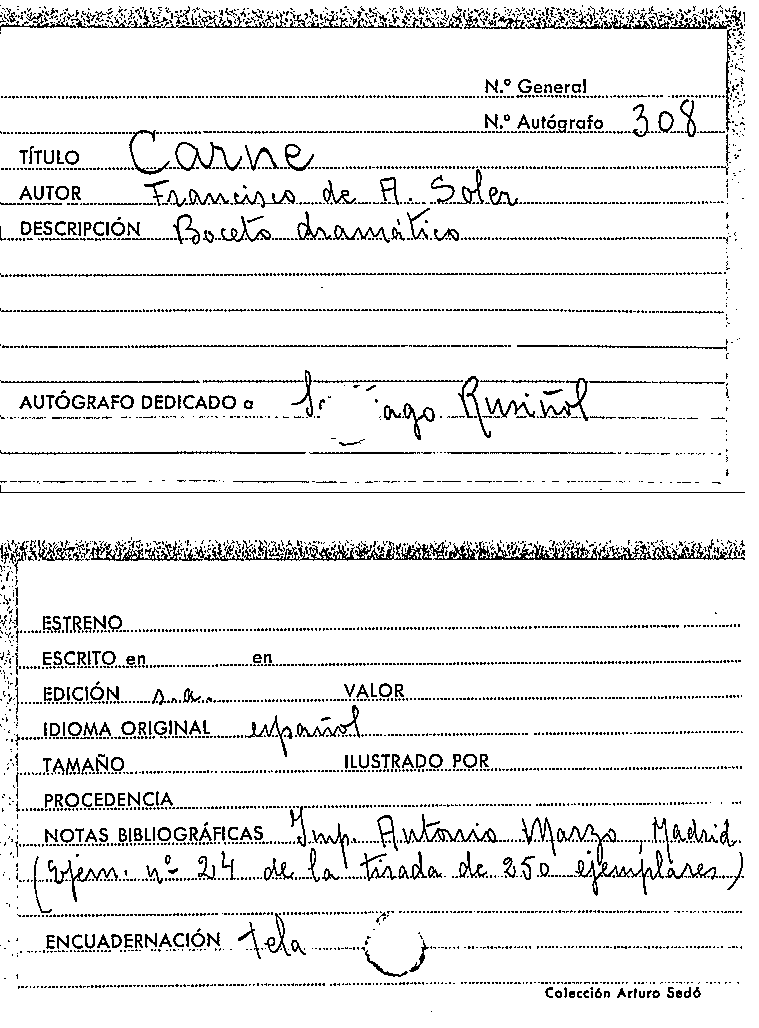 N.º General
N.º Autógrafo 308
TÍTULO Carne
AUTOR Francisco de A. Soler
DESCRIPCIÓN Boceto dramático
AUTÓGRAFO DEDICADO a Rusiñol
ESTRENO
ESCRITO en en
EDICIÓN s.a. VALOR
IDIOMA ORIGINAL español
TAMAÑO ILUSTRADO POR
PROCEDENCIA
NOTAS BIBLIOGRÁFICAS Imp. Antonio Marzo, Madrid
(Ejem. nº 24 de la tirada de 250 ejemplares)
ENCUADERNACIÓN tela
Colección Arturo Sedó